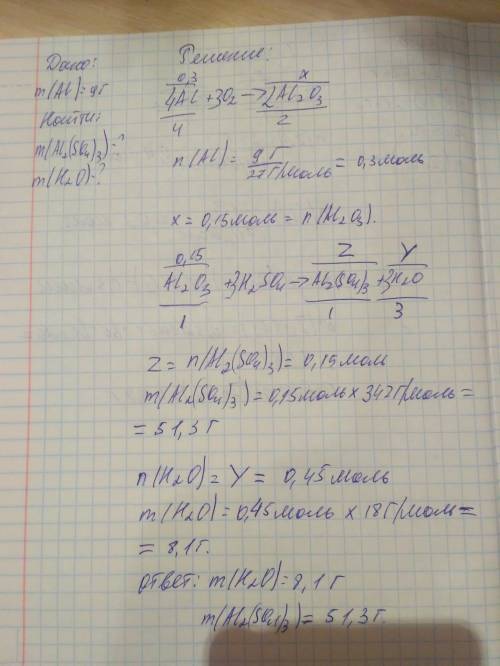 Дано:
m(Al)=9г
Найти:
m(Al2(SO4)3)=?
m(H2O)-?
Решение:
0,3 x
4Al + 3O2 → 2Al2O3
4 2
n(Al) = 9 г / 27 г/моль = 0,3 моль
x = 0,15 моль = n(Al2O3).
0,15 Z Y
Al2O3 + 3H2SO4 → Al2(SO4)3 + 3H2O
1 1 3
Z = n(Al2(SO4)3) = 0,15 мол
m(Al2(SO4)3) = 0,15 моль x 342 г/моль =
= 51,3 г
n(H2O) = Y = 0,45 моль
m(H2O) = 0,45 моль x 18 г/моль =
= 8,1 г.
ответ: m(H2O) = 8,1 г
m(Al2(SO4)3) = 51,3 г.